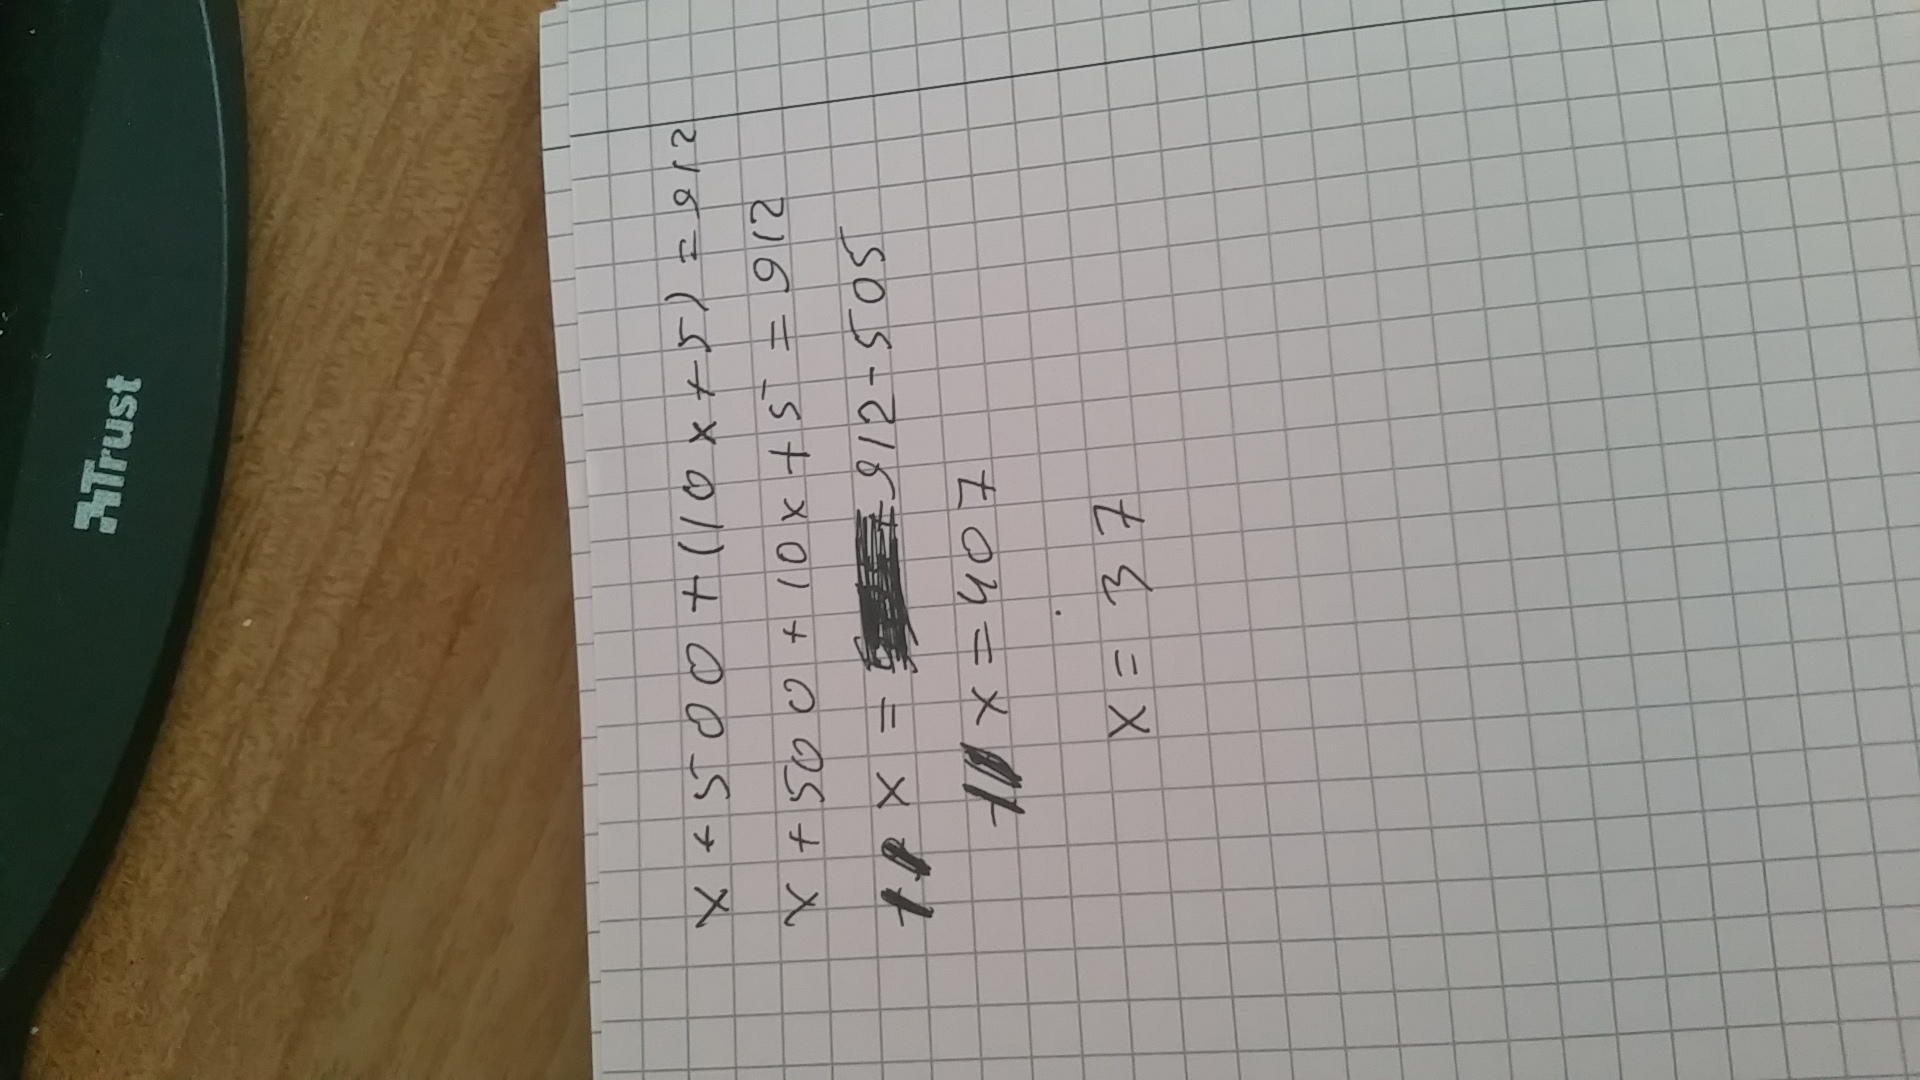 x + 500 + (10x + 5) = 912
x + 500 + 10x + 5 = 912
11x = 912 - 505
11x = 407
x = 37
Trust